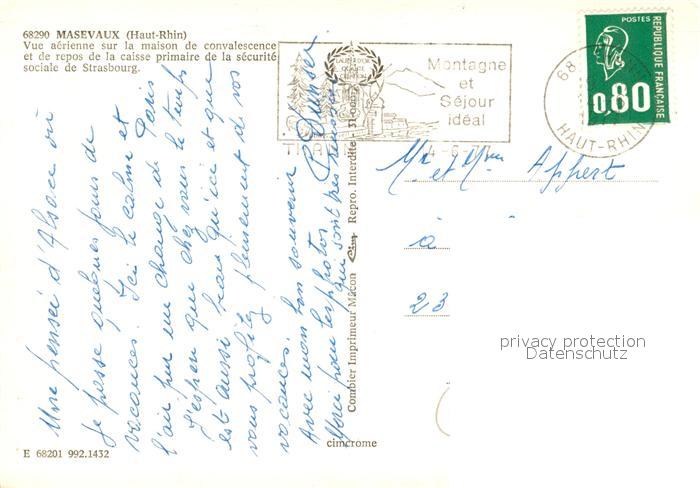 68290 MASEVAUX (Haut-Rhin)
Vue aérienne sur la maison de convalescence
et de repos de la caisse primaire de la sécurité
sociale de Strasbourg.
Une pensée d'Alsace où
je passe quelques jours de
vacances. Ici le calme et
l'air pur me change de Paris
J'espère que chez vous le temps
est aussi beau qu'ici et que
vous profitez pleinement de vos
vacances.
Avec mon bon souvenir
Merci pour les photos
qui sont très
E 68201 992.1432
cimcrome
Combier Imprimeur Mâcon Cim Repro. Interdite
Montagne
et
Séjour
idéal
POSTES
RÉPUBLIQUE FRANÇAISE
0.80
68
HAUT-RHIN
Mr et Mme Appert
à
23
privacy protection
Datenschutz